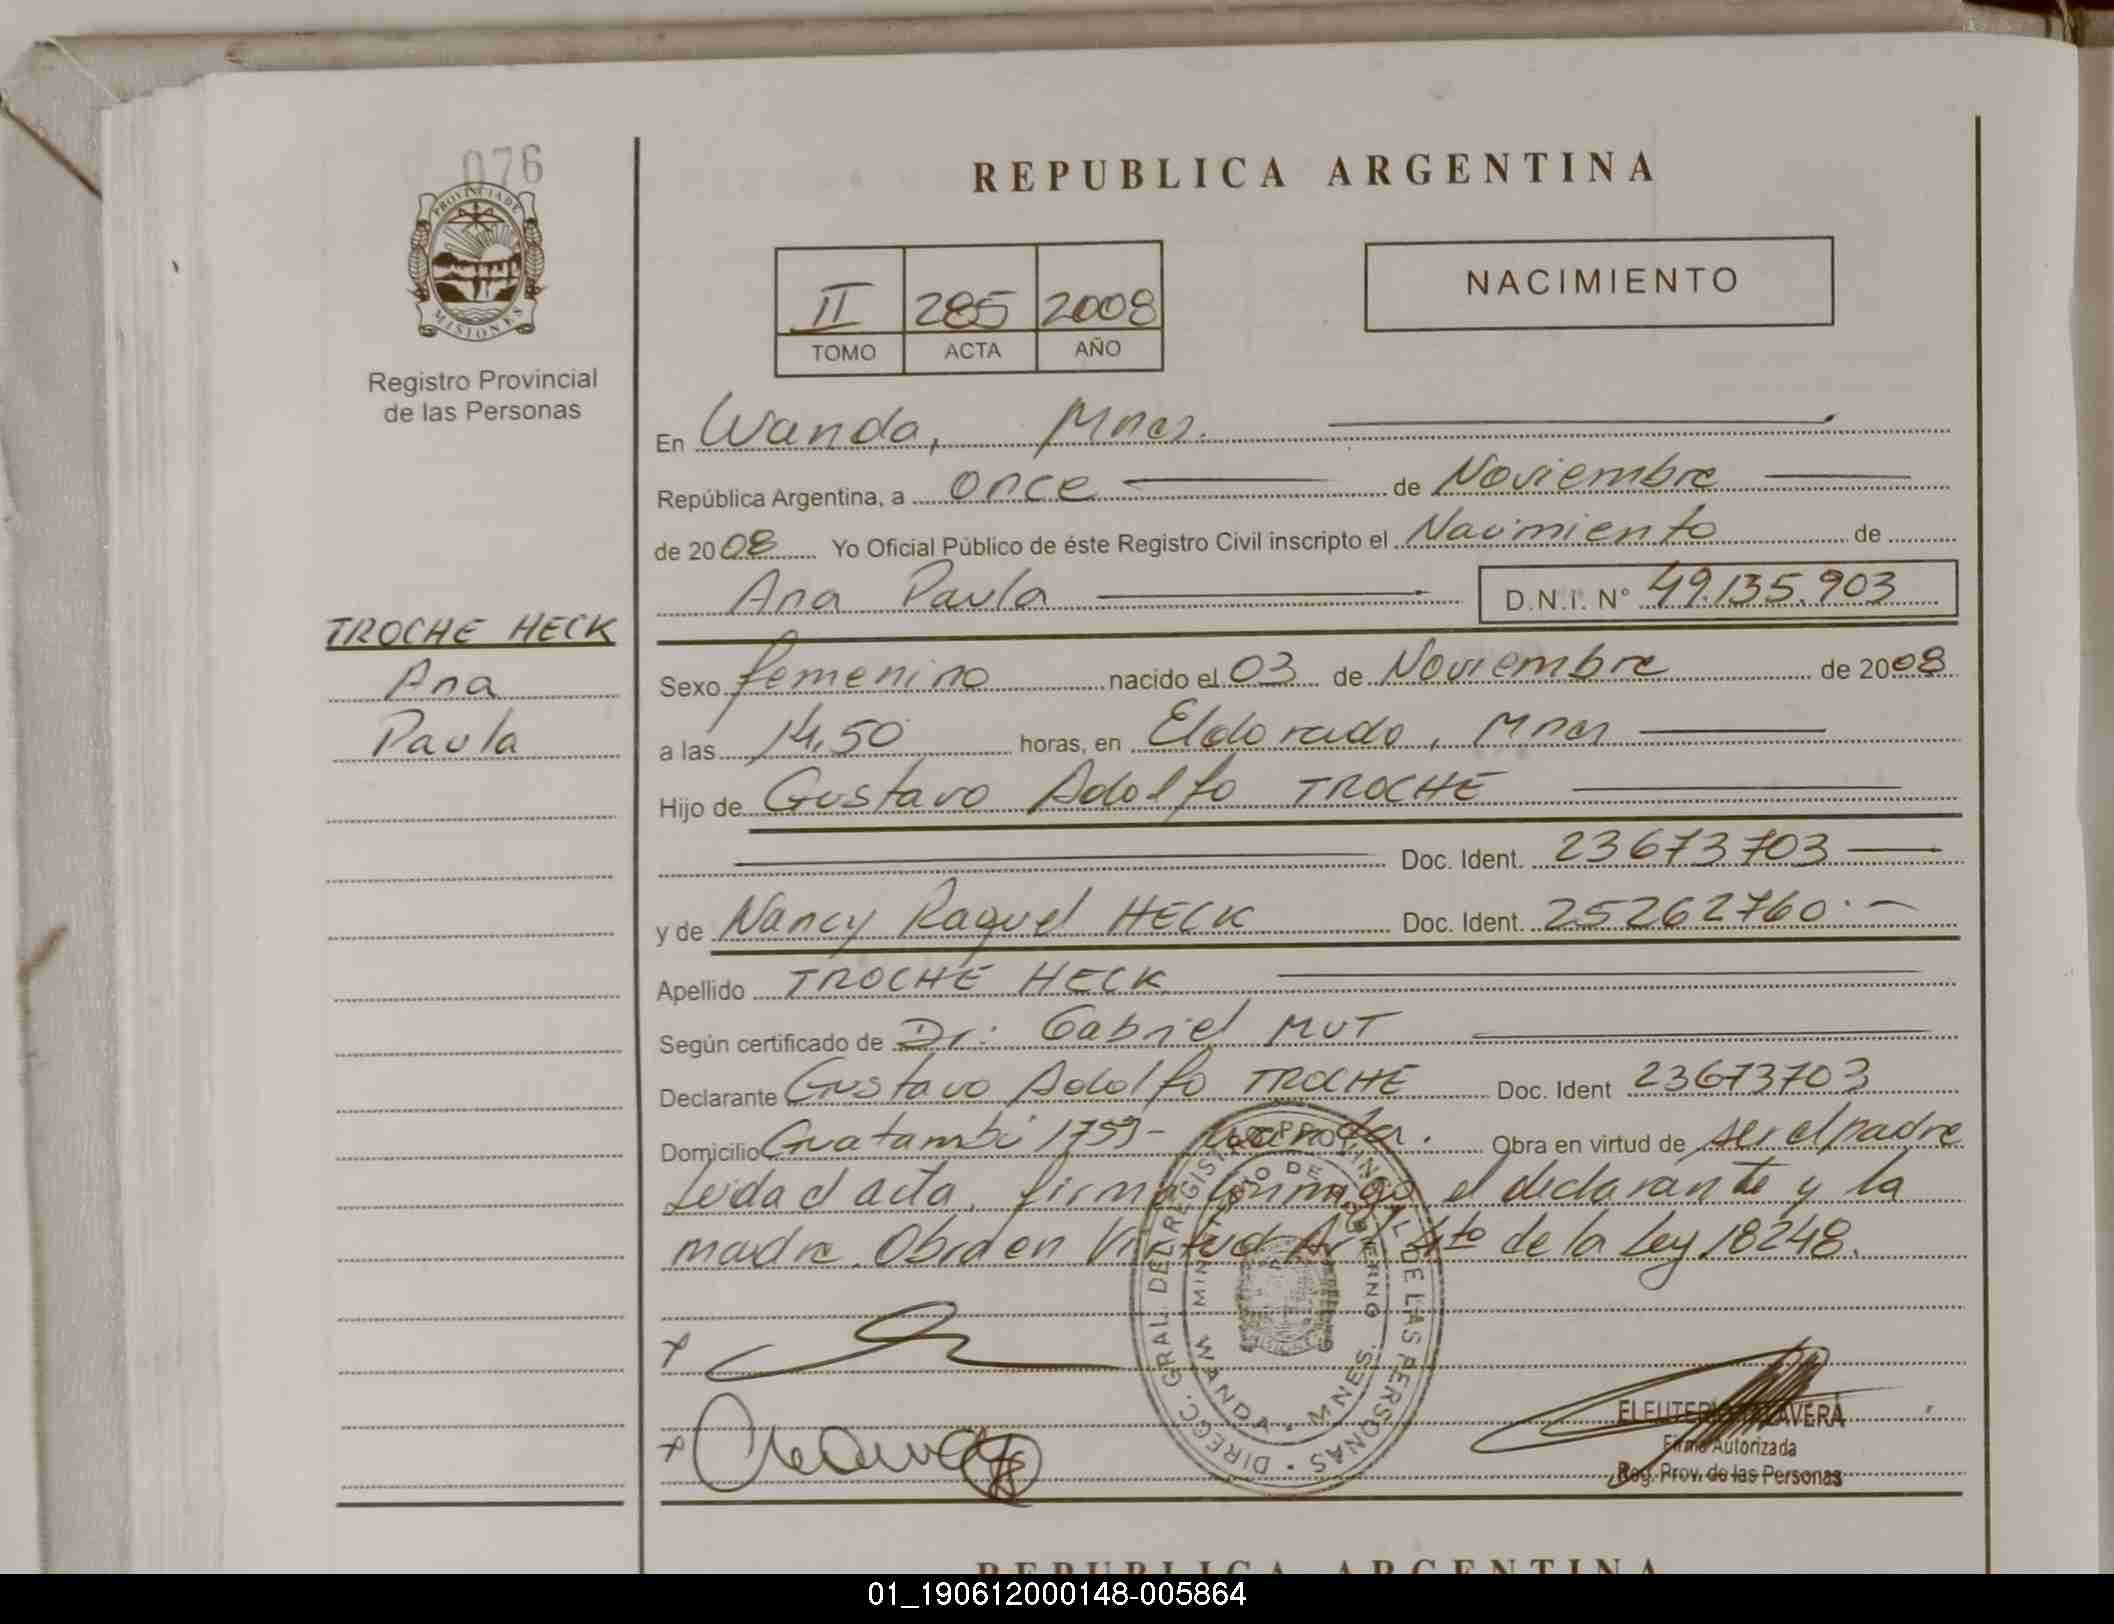 076
PROVINCIA DE
MISIONES
Registro Provincial
de las Personas
TROCHE HECK
Ana
Paula
REPUBLICA ARGENTINA
II 285 2008
TOMO ACTA AÑO
NACIMIENTO
En Wanda, Mnes.
República Argentina, a once de Noviembre
de 2008 Yo Oficial Público de éste Registro Civil inscripto el Nacimiento de
Ana Paula D.N.I. N° 49.135.903
Sexo femenino nacido el 03 de Noviembre de 2008
a las 14,50 horas, en Eldorado, Mnes
Hijo de Gustavo Adolfo TROCHE
Doc. Ident. 23673703
y de Nancy Raquel HECK Doc. Ident. 25262760.-
Apellido TROCHE HECK
Según certificado de Dr: Gabriel MUT
Declarante Gustavo Adolfo TROCHE Doc. Ident 23673703
Domicilio Guatambú 1759- Wanda. Obra en virtud de ser el padre
Leida el acta, firma conmigo el declarante y la
madre. Obra en Virtud Art 4to de la Ley 18248.
DIRECC. GRAL. DEL REGISTRO PROVINCIAL DE LAS PERSONAS
MINISTERIO DE GOBIERNO
WANDA - MNES.
ELEUTERIO TALAVERA
Firma Autorizada
Reg. Prov. de las Personas
REPUBLICA ARGENTINA
01_190612000148-005864